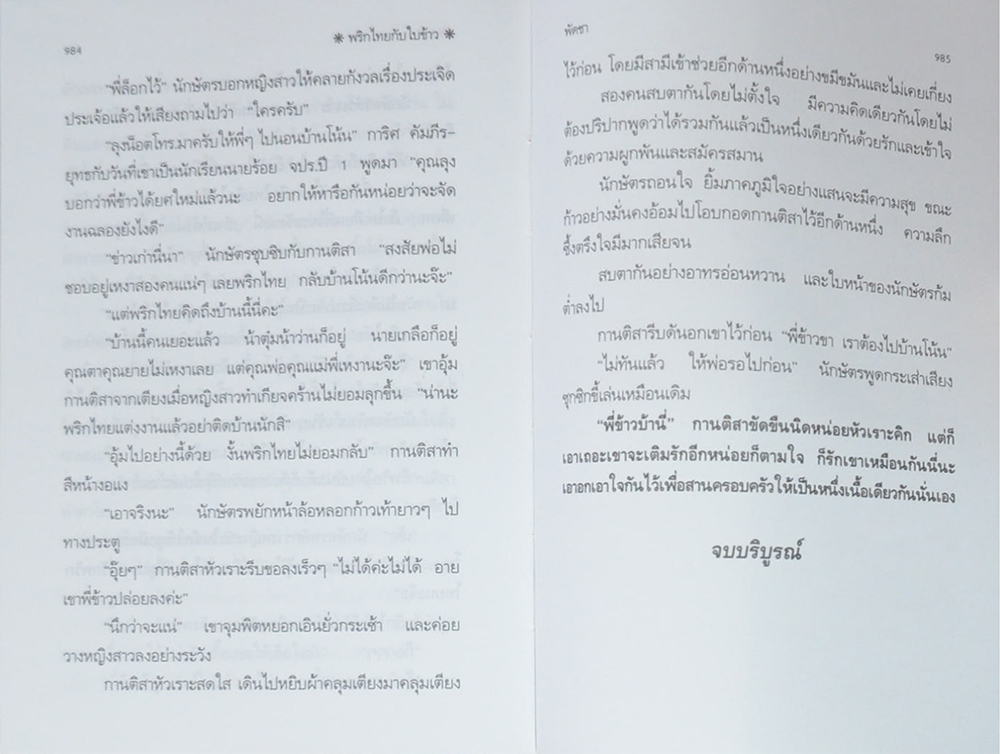 984
✳ พริกไทยกับใบข้าว ✳
"พี่ล็อกไว้" นักษัตรบอกหญิงสาวให้คลายกังวลเรื่องประเจิด
ประเจ้อแล้วให้เสียงถามไปว่า "ใครครับ"
"ลุงน็อตโทร.มาครับให้พี่ๆ ไปนอนบ้านโน้น" การิศ คัมภีร-
ยุทธกับวันที่เขาเป็นนักเรียนนายร้อย จปร.ปี 1 พูดมา "คุณลุง
บอกว่าพี่ข้าวได้ยศใหม่แล้วนะ อยากให้หารือกันหน่อยว่าจะจัด
งานฉลองยังไงดี"
"ข่าวเก่านี่นา" นักษัตรซุบซิบกับกานติสา "สงสัยพ่อไม่
ชอบอยู่เหงาสองคนแน่ๆ เลยพริกไทย กลับบ้านโน้นดีกว่านะจ๊ะ"
"แต่พริกไทยคิดถึงบ้านนี้นี่คะ"
"บ้านนี้คนเยอะแล้ว น้าตุ๋มน้าว่านก็อยู่ นายเกลือก็อยู่
คุณตาคุณยายไม่เหงาเลย แต่คุณพ่อคุณแม่พี่เหงานะจ๊ะ" เขาอุ้ม
กานติสาจากเตียงเมื่อหญิงสาวทำเกียจคร้านไม่ยอมลุกขึ้น "น่านะ
พริกไทยแต่งงานแล้วอย่าติดบ้านนักสิ"
"อุ้มไปอย่างนี้ด้วย งั้นพริกไทยไม่ยอมกลับ" กานติสาทำ
สีหน้างอแง
"เอาจริงนะ" นักษัตรพยักหน้าล้อหลอกก้าวเท้ายาวๆ ไป
ทางประตู
"อุ๊ยๆ" กานติสาหัวเราะรีบขอลงเร็วๆ "ไม่ได้ค่ะไม่ได้ อาย
เขาพี่ข้าวปล่อยลงค่ะ"
"นึกว่าจะแน่" เขาจุมพิตหยอกเอินยั่วกระเซ้า และค่อย
วางหญิงสาวลงอย่างระวัง
กานติสาหัวเราะสดใส เดินไปหยิบผ้าคลุมเตียงมาคลุมเตียง
พัดชา
985
ไว้ก่อน โดยมีสามีเข้าช่วยอีกด้านหนึ่งอย่างขมีขมันและไม่เคยเกี่ยง
สองคนสบตากันโดยไม่ตั้งใจ มีความคิดเดียวกันโดยไม่
ต้องปริปากพูดว่าได้รวมกันแล้วเป็นหนึ่งเดียวกันด้วยรักและเข้าใจ
ด้วยความผูกพันและสมัครสมาน
นักษัตรถอนใจ ยิ้มภาคภูมิใจอย่างแสนจะมีความสุข ขณะ
ก้าวอย่างมั่นคงอ้อมไปโอบกอดกานติสาไว้อีกด้านหนึ่ง ความลึก
ซึ้งตรึงใจมีมากเสียจน
สบตากันอย่างอาทรอ่อนหวาน และใบหน้าของนักษัตรก้ม
ต่ำลงไป
กานติสารีบดันอกเขาไว้ก่อน "พี่ข้าวขา เราต้องไปบ้านโน้น"
"ไม่ทันแล้ว ให้พ่อรอไปก่อน" นักษัตรพูดกระเส่าเสียง
ซุกซิกขี้เล่นเหมือนเดิม
"พี่ข้าวบ้านี่" กานติสาขัดขืนนิดหน่อยหัวเราะคิก แต่ก็
เอาเถอะเขาจะเติมรักอีกหน่อยก็ตามใจ ก็รักเขาเหมือนกันนี่นะ
เอาอกเอาใจกันไว้เพื่อสานครอบครัวให้เป็นหนึ่งเนื้อเดียวกันนั่นเอง
จบบริบูรณ์